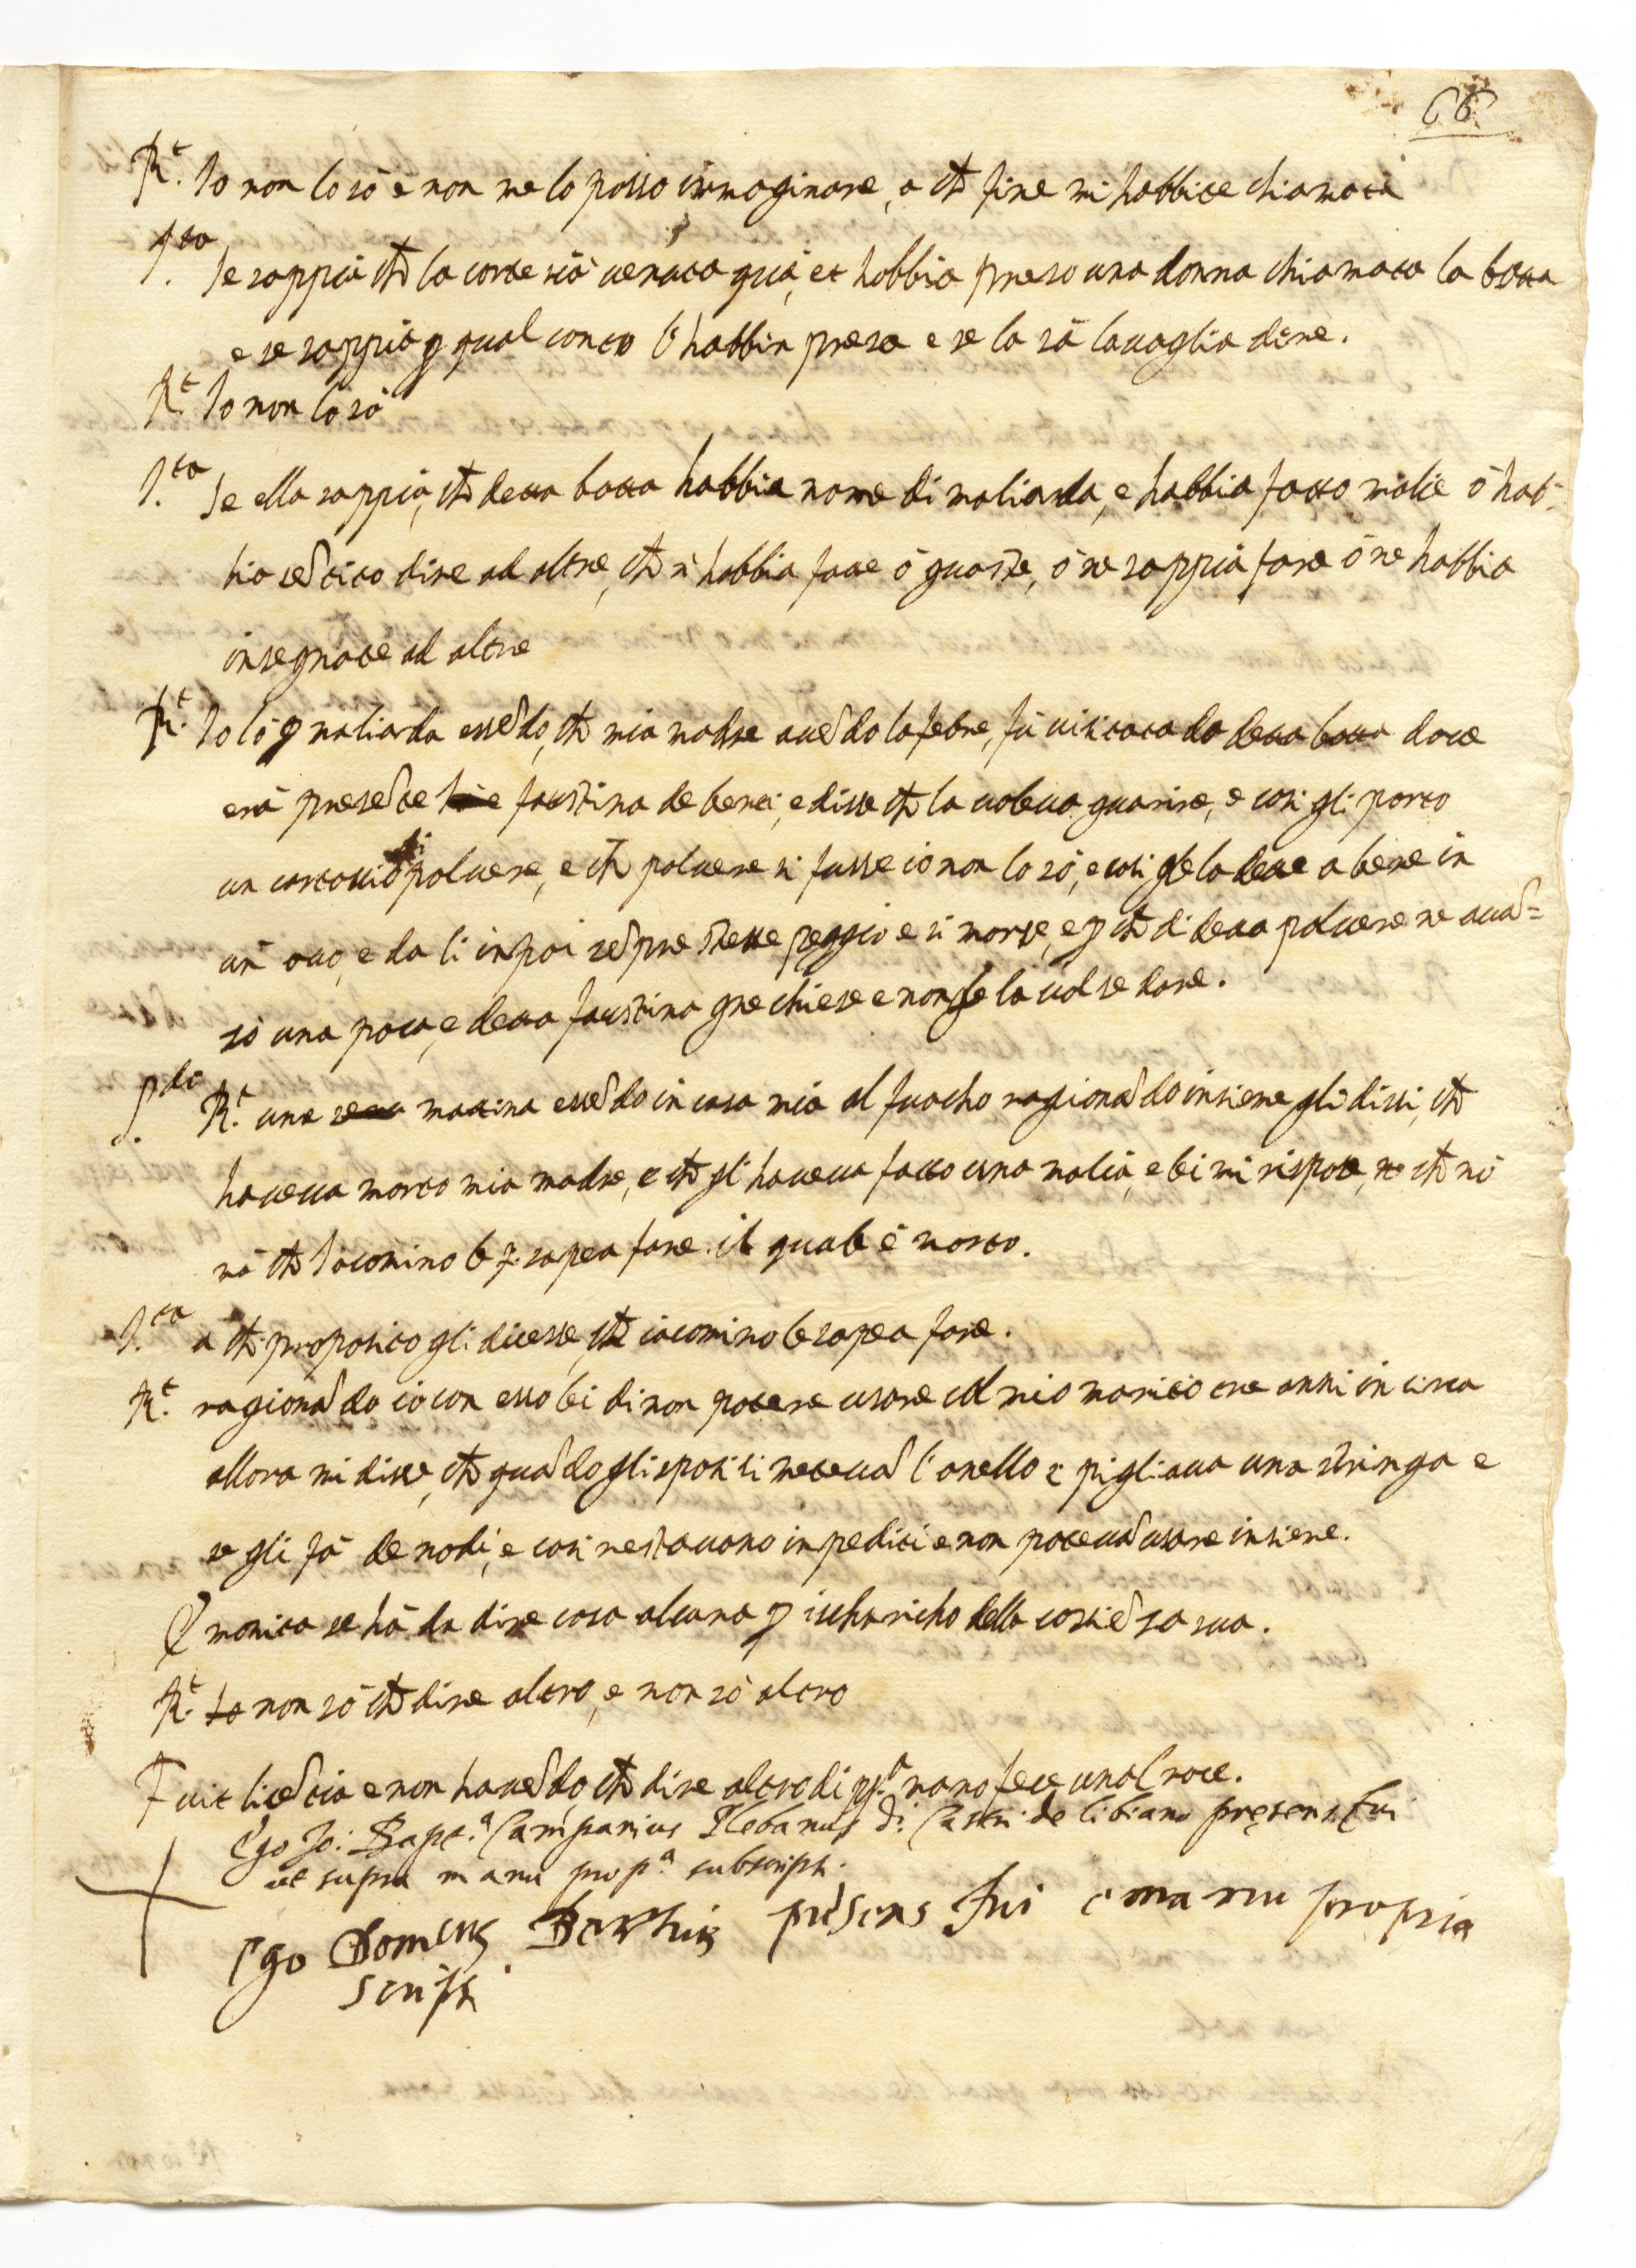 66
R.t Io non lo sò e non me lo posso immaginare, a ch̃ fine mi habbiate chiamata
I.ta se sappia ch̃ la corte sia uenuta quà, et habbia preso una donna chiamata la botta
e se sappia ꝑ qual conto l'habbin presa e se lo sà lo uoglia dire.
R.t Io non lo sò
I.ta se ella sappia, ch̃ detta botta habbia nome di maliarda, e habbia fatto malie ò hab-
bia sẽtito dire ad altre, ch̃ n'habbia fatte ò guaste, ò ne sappia fare ò ne habbia
insegnate ad altre
R.t Io l'ò ꝑ maliarda essẽdo, ch̃ mia madre auẽdo la febre, fù uisitata da detta botta doue
erà presẽte faustina de benci, e disse ch̃ la uoleua guarire, e cosi gli porto
un cartoccio di poluere, e ch̃ poluere si fusse io non lo sò, e cosi gle la dette a bere in
un ouo, e da li in poi sẽpre stette peggio e si morse, e ꝑ ch̃ di detta poluere ne auã=
sò una poca, e detta faustina gne chiese e non gle la uolse dare.
S.da R.t una mattina essẽdo in casa mia al fuocho ragionãdo insieme gli dissi, ch̃
haueua morto mia madre, e ch̃ gli haueua fatto una malia, e lei mi rispose, ch̃ nò
mà ch̃ Iacomino le sapea fare. il quale è morto.
I.ta a ch̃ proposito gli dicesse, ch̃ iacomino le sapea fare.
R.t ragionãdo io con esso lei di non potere usare col mio marito tre anni in circa
allora mi disse, ch̃ quãdo gli sposi si meteuã l'anello si pigliaua una stringa e
se gli fà de nodi, e cosi restauano inpediti e non poteuã usare insieme.
E monita se hà da dire cosa alcuna ꝑ ischaricho della cosciẽza sua.
R.t Io non sò ch̃ dire altro, e non sò altro
Fuit licẽtia e non hauẽdo ch̃ dire altro di pp.a mano fece una Croce.
Ego Jo: Bapt.a Campanius Plebanus d.i Castri de libiano presens fui
ut supra manu prop.a subscripsi.
Ego Domcus presens fui e manu propria
scripsi